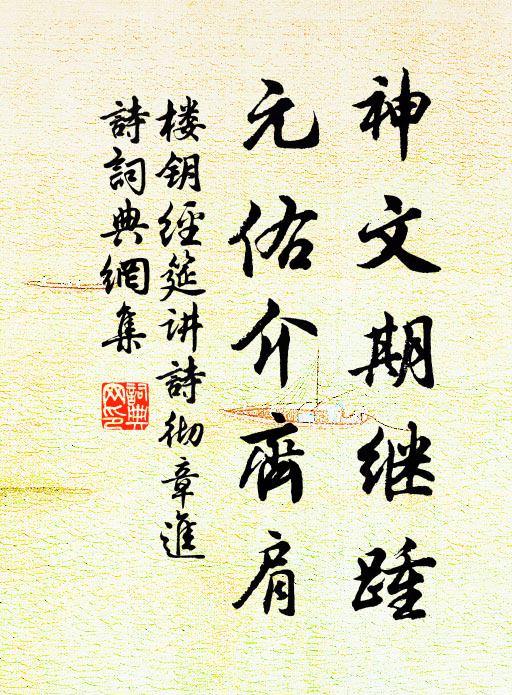 神文期继踵
元佑介齊肩
楼钥經筵讲詩彻章進
詩詞典網集
詞典网印